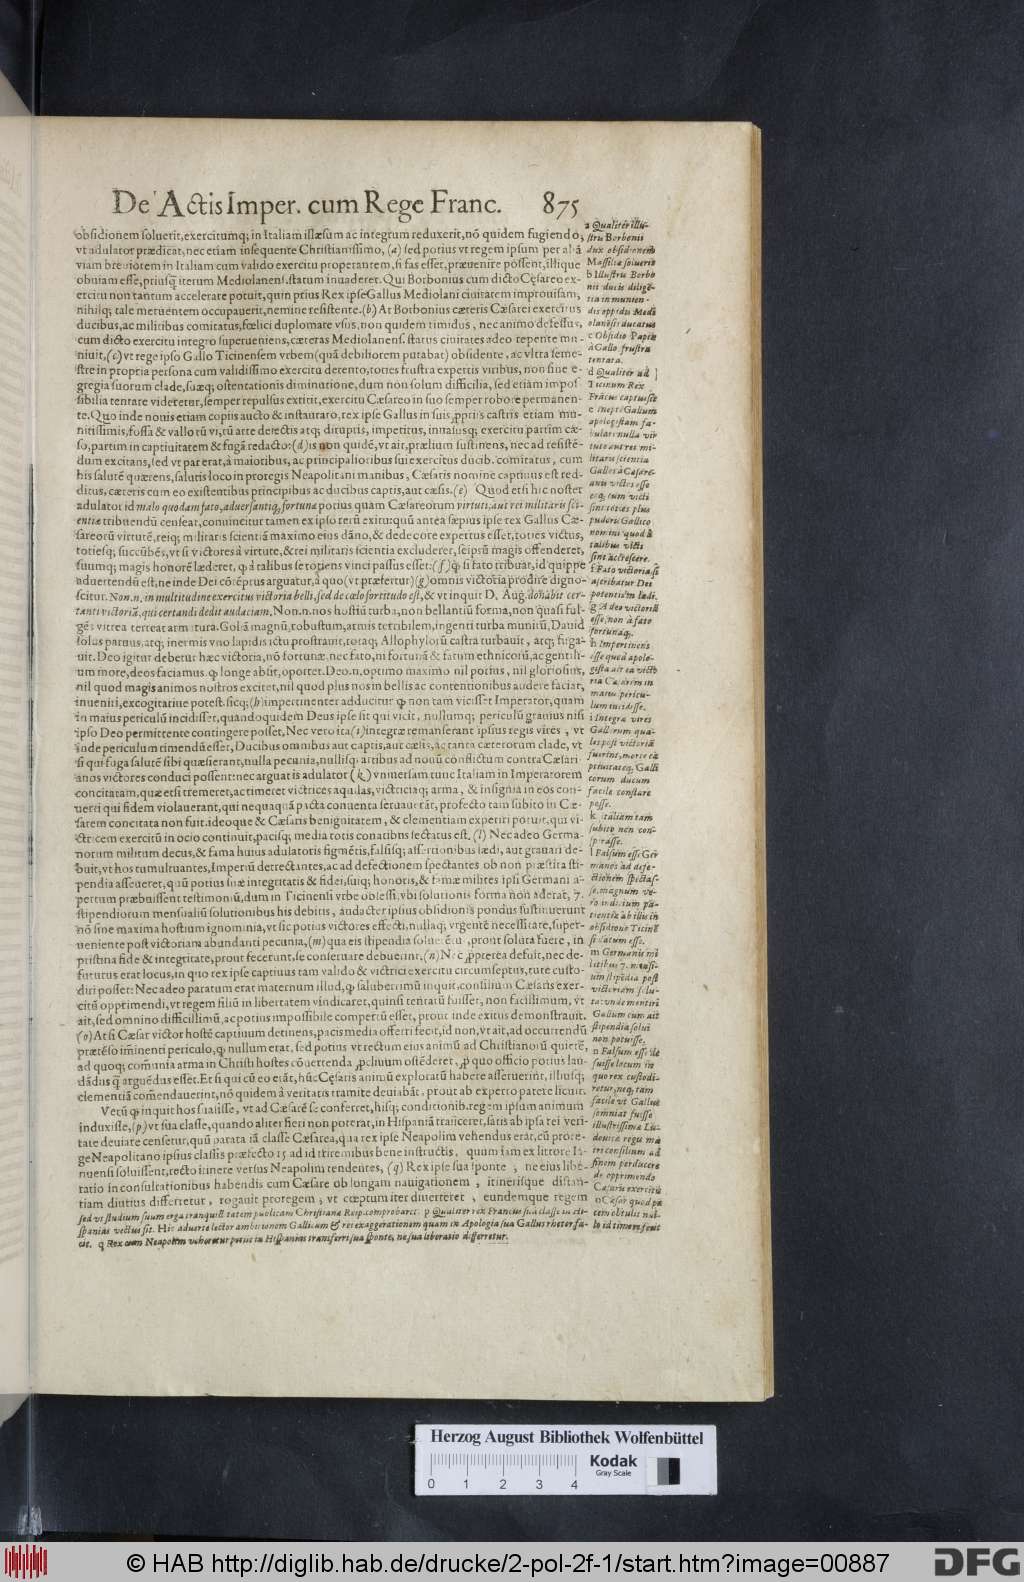 De Actis Imper. cum Rege Franc. 875
obsidionem soluerit, exercitumq; in Italiam illæsum ac integrum reduxerit, nõ quidem fugiendo,
vt adulator prædicat, nec etiam insequente Christianissimo, (a) sed potius vt regem ipsum per aliã
viam breuiorem in Italiam cum valido exercitu properantem, si fas esset, præuenire possent, illique
obuiam esse, priusq̃ iterum Mediolanens. statum inuaderet. Qui Borbonius cum dicto Cęsareo ex-
ercitu non tantum accelerare potuit, quin prius Rex ipse Gallus Mediolani ciuitatem improuisam,
nihilq; tale metuentem occupauerit, nemine resistente. (b) At Borbonius cæteris Cæsarei exercitus
ducibus, ac militibus comitatus, fœlici duplomate vsus, non quidem timidus, nec animo defessus,
cum dicto exercitu integro superueniens, cæteras Mediolanens. status ciuitates adeo repente mu-
niuit, (c) vt rege ipso Gallo Ticinensem vrbem (quã debiliorem putabat) obsidente, ac vltra seme-
stre in propria persona cum validissimo exercitu detento, toties frustra expertis viribus, non sine e-
gregia suorum clade, suæq; ostentationis diminutione, dum non solum difficilia, sed etiam impos
sibilia tentare videretur, semper repulsus extitit, exercitu Cæsareo in suo semper robore permanen-
te. Quo inde nouis etiam copiis aucto & instaurato, rex ipse Gallus in suis ꝓpriis castris etiam mu-
nitissimis, fossa & vallo tū vi, tū arte detectis atq; diruptis, impetitus, inuasusq; exercitu partim cæ-
so, partim in captiuitatem & fugã redacto: (d) is non quidē, vt ait, prælium sustinens, nec ad resistē-
dum excitans, sed vt par erat, à maioribus, ac principalioribus sui exercitus ducib. comitatus, cum
his salutē quærens, salutis loco in proregis Neapolitani manibus, Cæsaris nomine captiuus est red-
ditus, cæteris cum eo existentibus principibus ac ducibus captis, aut cæsis. (e) Quod etsi hic noster
adulator id malo quodam fato, aduersantiq; fortunæ potius quam Cæsareorum virtuti, aut rei militaris sci-
entiæ tribuendū censeat, conuincitur tamen ex ipso rerū exitu: quū antea sæpius ipse rex Gallus Cæ-
sareorū virtutē, reiq; militaris scientiã maximo eius dãno, & dedecore expertus esset, toties victus,
totiesq; succūbēs, vt si victores à virtute, & rei militaris scientia excluderet, seipsū magis offenderet,
suumq; magis honorē læderet, ꝙ à talibus se totiens vinci passus esset: (f) ꝙ si fato tribuat, id quippe
aduertendū est, ne inde Dei cōtēptus arguatur, à quo (vt præfertur) (g) omnis victoria prodire digno-
scitur. Non. n. in multitudine exercitus victoria belli, sed de cœlo fortitudo est, & vt inquit D. Aug. donabit cer-
tanti victoriã, qui certandi dedit audaciam. Non. n. nos hostiū turba, non bellantiū forma, non quasi ful-
gēs vitrea terreat armatura. Goliã magnū, robustum, armis terribilem, ingenti turba munitū, Dauid
solus paruus, atq; inermis vno lapidis ictu prostrauit, totaq; Allophylorū castra turbauit, atq; fuga-
uit. Deo igitur debetur hæc victoria, nō fortunæ, nec fato, ni fortunã & fatum ethnicorū, ac gentili-
um more, deos faciamus. ꝙ longe absit, oportet. Deo. n. optimo maximo nil potius, nil gloriosius,
nil quod magis animos nostros excitet, nil quod plus nos in bellis ac contentionibus audere faciat,
inueniri, excogitarine potest. sicq; (h) impertinenter adducitur ꝙ non tam vicisset Imperator, quam
in maius periculū incidisset, quandoquidem Deus ipse sit qui vicit, nullumq; periculū grauius nisi
ipso Deo permittente contingere posset. Nec vero ita (i) integræ remanserant ipsius regis vires, vt
inde periculum timendū esset, Ducibus omnibus aut captis, aut cæsis, ac tanta cæterorum clade, vt
si qui fuga salutē sibi quæsierant, nulla pecunia, nullisq; artibus ad nouū conflictum contra Cæsari
anos victores conduci possent: nec arguat is adulator (k) vniuersam tunc Italiam in Imperatorem
concitatam, quæ etsi tremeret, ac timeret victrices aquilas, victriciaq; arma, & insignia in eos con-
uerti qui fidem violauerant, qui nequaquã pacta conuenta seruauerãt, profecto tam subito in Cæ-
sarem concitata non fuit. ideoque & Cæsaris benignitatem, & clementiam experiri potuit, qui vi-
ctricem exercitū in ocio continuit, pacisq; media totis conatibus sectatus est. (l) Nec adeo Germa-
norum militum decus, & fama huius adulatoris figmētis, falsisq; assertionibus lædi, aut grauari de-
buit, vt hos tumultuantes, Imperiū detrectantes, ac ad defectionem spectantes ob non præstita sti-
pendia asseueret, quū potius suæ integritatis & fidei, suiq; honoris, & famæ milites ipsi Germani a-
pertum præbuissent testimoniū, dum in Ticinensi vrbe obsessi, vbi solutionis forma non aderat, 7.
stipendiorum mensualiū solutionibus his debitis, audacter ipsius obsidionis pondus sustinuerunt
nō sine maxima hostium ignominia, vt sic potius victores effecti, nullaq; vrgente necessitate, super-
ueniente post victoriam abundanti pecunia, (m) qua eis stipendia soluerētur, prout soluta fuere, in
pristina fide & integritate, prout fecerunt, se conseruare debuerint. (n) Nec ꝓpterea defuit, nec de-
futurus erat locus, in quo rex ipse captiuus tam valido & victrici exercitu circumseptus, tute custo-
diri posset: Nec adeo paratum erat maternum illud, ꝙ saluberrimū inquit, consilium Cæsaris exer-
citū opprimendi, vt regem filiū in libertatem vindicaret, quin si tentatū fuisset, non facillimum, vt
ait, sed omnino difficillimū, ac potius impossibile compertū esset, prout inde exitus demonstrauit.
(o) At si Cæsar victor hostē captiuum detinens, pacis media offerri fecit, id non, vt ait, ad occurrendū
prætēso im̃inenti periculo, ꝙ nullum erat, sed potius vt rectum eius animū ad Christianorū quietē,
ad quoq; com̃unia arma in Christi hostes cōuertenda ꝓcliuum ostēderet, ꝓ quo officio potius lau-
dãdus q̃ arguēdus esset. Et si qui cū eo erãt, hūc Cęsaris animū exploratū habere asseruerūt, illiusq;
clementiã com̃endauerint, nō quidem à veritatis tramite deuiabãt, prout ab experto patere licuit.
Verū ꝙ inquit hos suasisse, vt ad Cæsarē se conferret, hisq; conditionib. regem ipsum animum
induxisse, (p) vt sua classe, quando aliter fieri non poterat, in Hispaniã traiiceret, satis ab ipsa rei veri-
tate deuiare censetur, quū parata iã classe Cæsarea, qua rex ipse Neapolim vehendus erat, cū prore-
ge Neapolitano ipsius classis præfecto 15 ad id triremibus bene instructis, quum iam ex littore Ia-
nuensi soluissent, recto itinere versus Neapolim tendentes, (q) Rex ipse sua sponte, ne eius libe-
ratio in consultationibus habendis cum Cæsare ob longam nauigationem, itinerisque distan-
tiam diutius differretur, rogauit proregem, vt cœptum iter diuerteret, eundemque regem
sed vt studium suum erga tranquillitatem publicam Christianæ Resp. comprobaret. p Qualiter rex Francus sua classe in Hi-
spanias vectus sit. Hic aduerte lector ambitionem Gallicam & rei exaggerationem quam in Apologia sua Gallus rhetor fa-
cit. q Rex cum Neapolim veheretur potius in Hispanias transferri sua sponte, ne sua liberatio differretur.
a Qualiter illu-
stris Borbonii
dux obsidionem
Massiliæ soluerit
b Illustris Borbo
nii ducis diligē-
tia in munien-
dis oppidis Medi
olanēsis ducatus
c Obsidio Papiæ
à Gallo frustra
tentata.
d Qualiter ad
Ticinum Rex
Frãcus captus sit
e Inepte Gallum
apologistam fa-
bulari nulla vir
tute aut rei mi-
litaris scientia
Gallos à Cæsare-
anis victos esse
eoq; cum victi
sint toties plus
pudoris Gallico
nomini quod à
talibus victi
sint accrescere.
f Fato victoria, si
ascribatur Dei
potentiam lædi.
g A deo victoriã
esse, non à fato
fortunaq;.
h Impertinens
esse quod apolo-
gista ait ea victo
ria Cæsarem in
maius pericu-
lum incidisse.
i Integræ vires
Gallorum qua-
les post victoriã
fuerint, morte ca
ptiuitateq; Galli
corum ducum
facile constare
posse.
k Italiam tam
subito non con-
spirasse.
l Falsum esse Ger
manos ad defe-
ctionem spectas-
se, magnum ve-
ro indicium pa-
tientiæ ab illis in
obsidione Ticinē
si datum esse.
m Germanis mi
litibus 7. mensi-
um stipēdia post
victoriam solu-
ta: vnde mentirů
Gallum cum ait
stipendia solui
non potuisse.
n Falsum esse dē
fuisse locum in
quo rex custodi-
retur, neq; tam
facile vt Gallus
somniat fuisse
illustrissimæ Lu-
douicæ regis ma
tris consilium ad
finem perducere
de opprimendo
Cæsaris exercitu
o Cæsar quod pa
cem obtulit nul-
lo id timore fecit
Herzog August Bibliothek Wolfenbüttel
Kodak
Gray Scale
0 1 2 3 4
© HAB http://diglib.hab.de/drucke/2-pol-2f-1/start.htm?image=00887
DFG